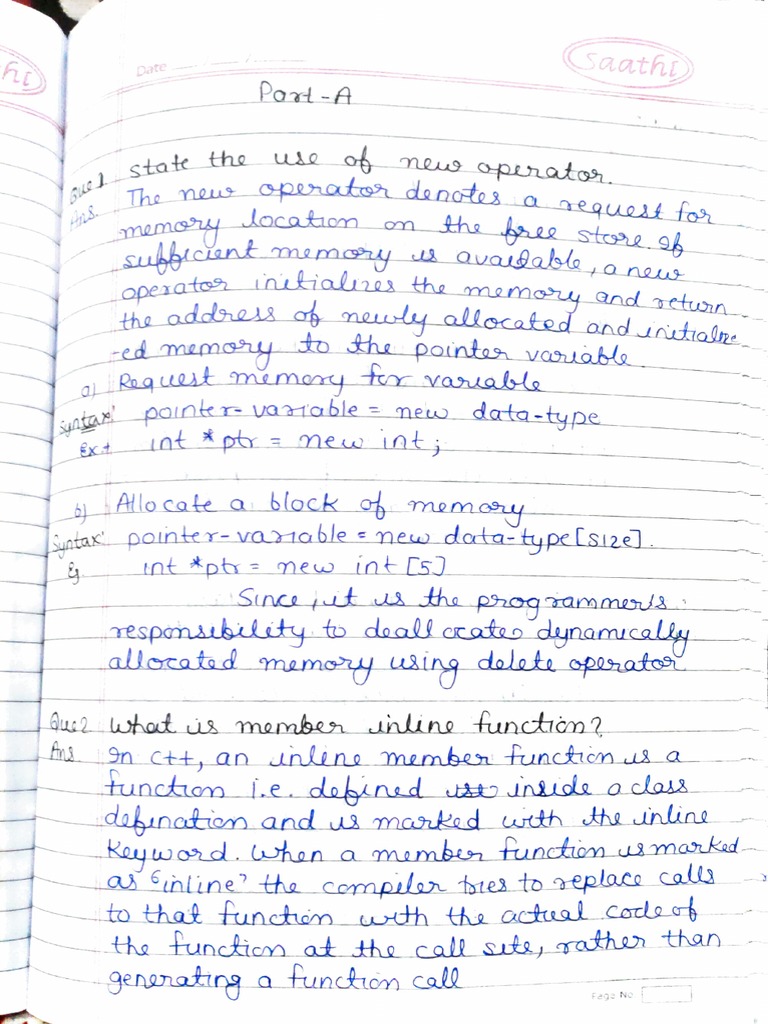 Date
saathi
Part-A
Que1 state the use of new operator.
Ans. The new operator denotes a request for
memory location on the free store. If
sufficient memory is available, a new
operator initializes the memory and return
the address of newly allocated and initialize
-ed memory to the pointer variable.
a) Request memory for variable
Syntax: pointer-variable = new data-type
Ex+ int *ptr = new int;
b) Allocate a block of memory
Syntax: pointer-variable = new data-type[size].
Eg int *ptr = new int [5]
Since, it is the programmer's
responsibility to deallocates dynamically
allocated memory using delete operator
Que2 What is member inline function?
Ans In C++, an inline member function is a
function i.e. defined inside a class
defination and is marked with the inline
Keyword. When a member function is marked
as 'inline' the compiler tries to replace calls
to that function with the actual code of
the function at the call site, rather than
generating a function call
Page No.